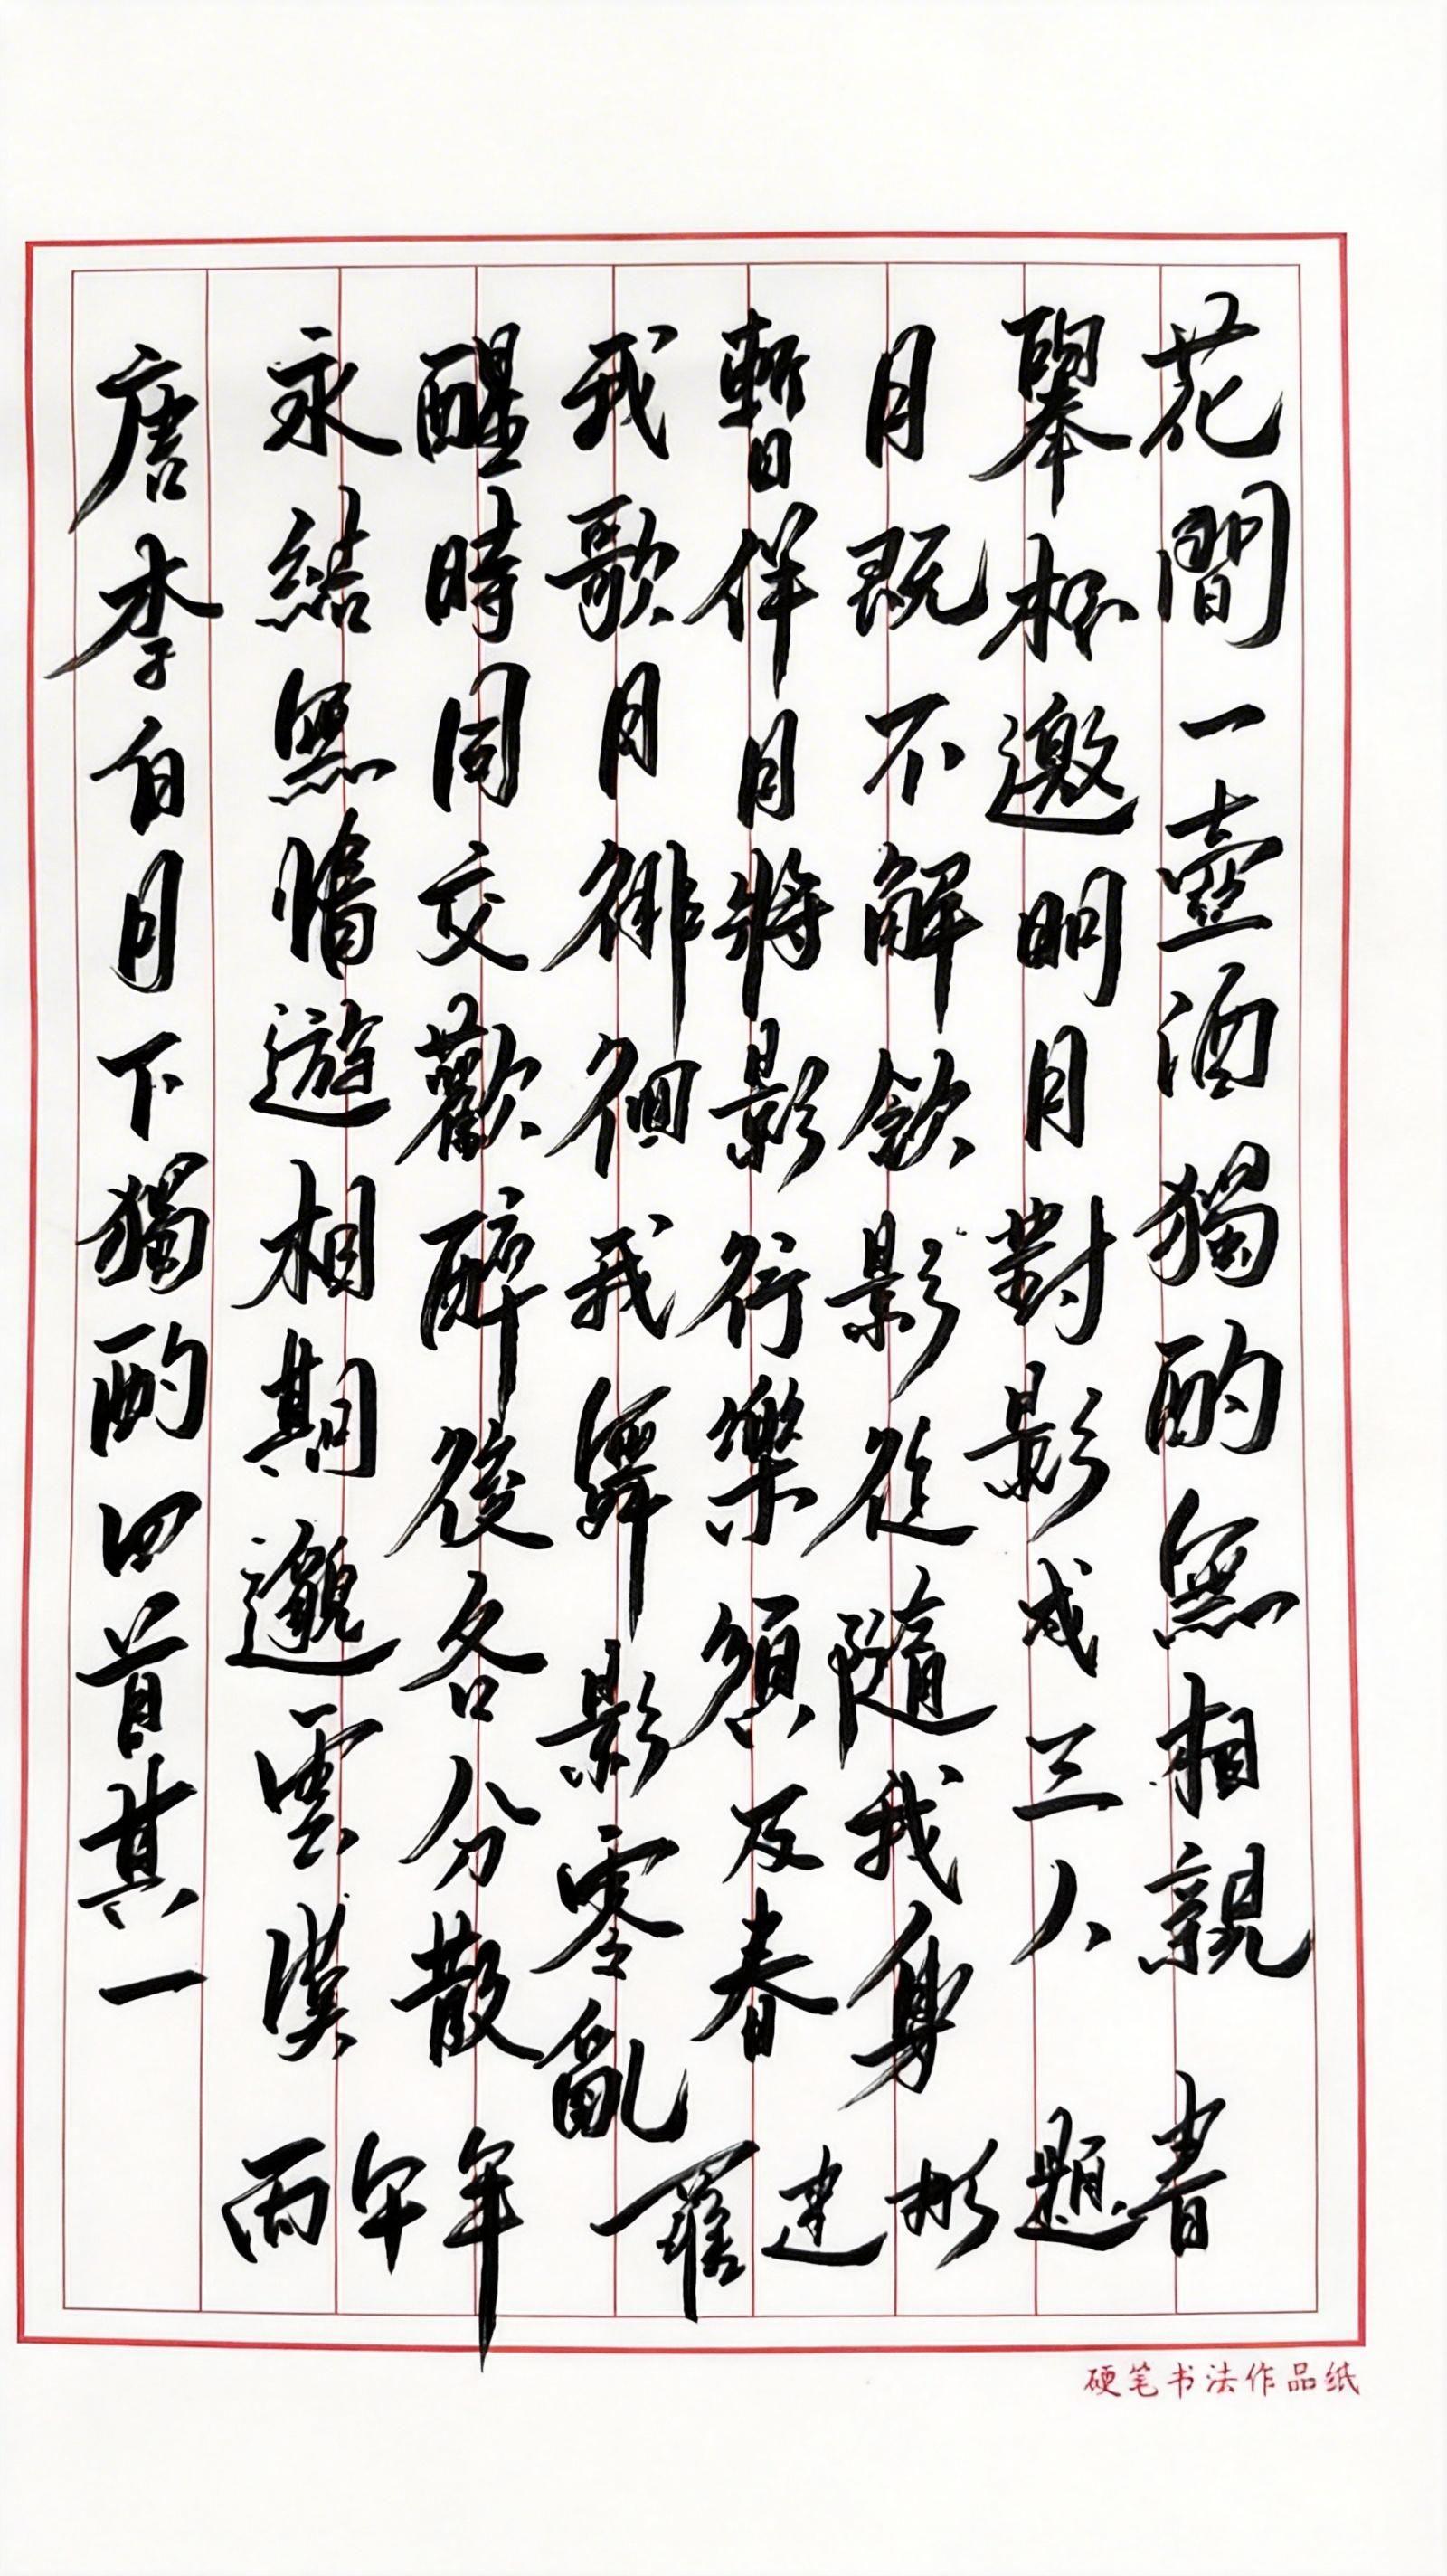 花間一壺酒獨酌無相親
舉杯邀明月對影成三人
月既不解飲影徒隨我身
暫伴月將影行樂須及春
我歌月徘徊我舞影零亂
醒時同交歡醉後各分散
永結無情遊相期邈雲漢
唐李白月下獨酌四首其一
丙午年 羅建彬題書
硬笔书法作品纸